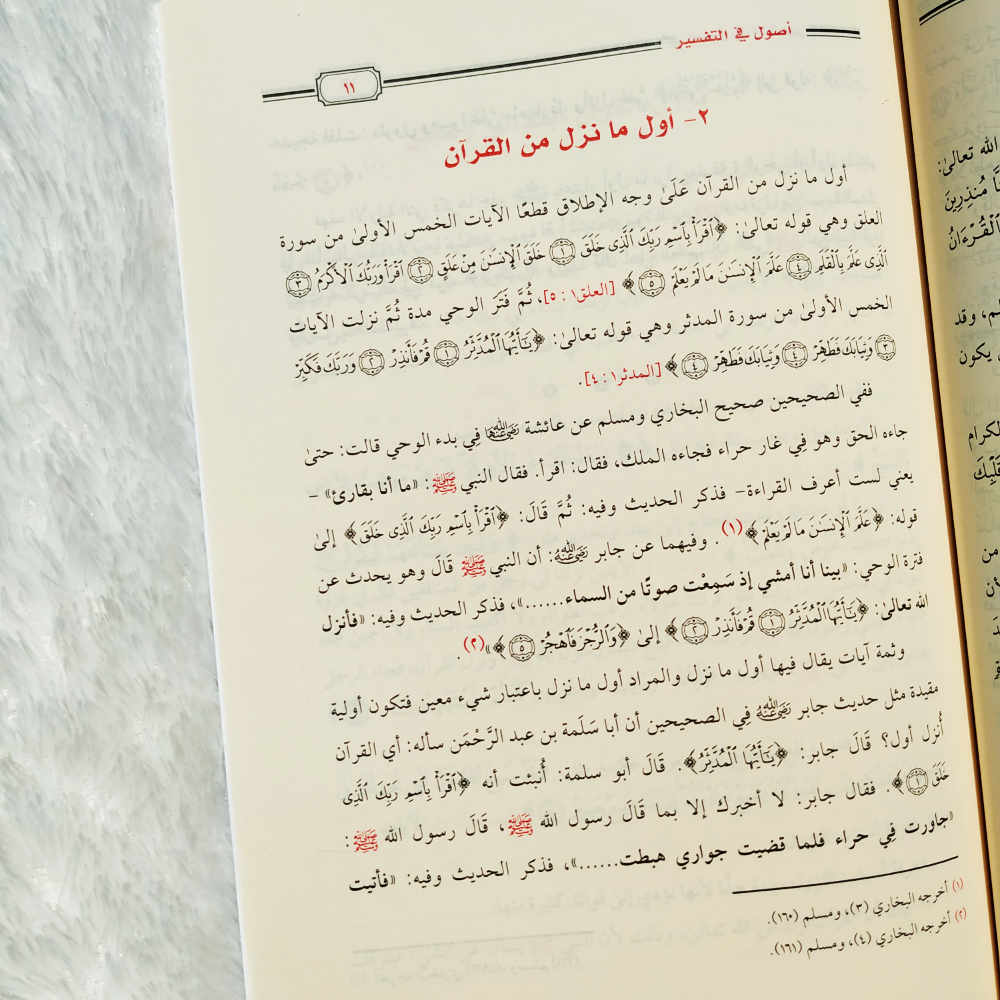 أصول في التفسير
١١
٢- أول ما نزل من القرآن
أول ما نزل من القرآن عَلَىٰ وجه الإطلاق قطعًا الآيات الخمس الأولىٰ من سورة
العلق وهي قوله تعالىٰ: ﴿ٱقْرَأْ بِٱسْمِ رَبِّكَ ٱلَّذِى خَلَقَ ۝١ خَلَقَ ٱلْإِنسَـٰنَ مِنْ عَلَقٍ ۝٢ ٱقْرَأْ وَرَبُّكَ ٱلْأَكْرَمُ ۝٣
ٱلَّذِى عَلَّمَ بِٱلْقَلَمِ ۝٤ عَلَّمَ ٱلْإِنسَـٰنَ مَا لَمْ يَعْلَمْ ۝٥﴾ [العلق١ : ٥]، ثُمَّ فَتَرَ الوحي مدة ثُمَّ نزلت الآيات
الخمس الأولىٰ من سورة المدثر وهي قوله تعالىٰ: ﴿يَـٰٓأَيُّهَا ٱلْمُدَّثِّرُ ۝١ قُمْ فَأَنذِرْ ۝٢ وَرَبَّكَ فَكَبِّرْ
۝٣ وَثِيَابَكَ فَطَهِّرْ ۝٤ وَثِيَابَكَ فَطَهِّرْ ۝٤﴾ [المدثر١ : ٤].
ففي الصحيحين صحيح البخاري ومسلم عن عائشة رضي الله عنها فِي بدء الوحي قالت: حتىٰ
جاءه الحق وهو فِي غار حراء فجاءه الملك، فقال: اقرأ. فقال النبي ﷺ: «ما أنا بقارئ» -
يعني لست أعرف القراءة- فذكر الحديث وفيه: ثُمَّ قَالَ: ﴿ٱقْرَأْ بِٱسْمِ رَبِّكَ ٱلَّذِى خَلَقَ﴾ إلىٰ
قوله: ﴿عَلَّمَ ٱلْإِنسَـٰنَ مَا لَمْ يَعْلَمْ﴾(١). وفيهما عن جابر رضي الله عنه: أن النبي ﷺ قَالَ وهو يحدث عن
فترة الوحي: «بينا أنا أمشي إذ سَمِعْت صوتًا من السماء......»، فذكر الحديث وفيه: «فأنزل
الله تعالىٰ: ﴿يَـٰٓأَيُّهَا ٱلْمُدَّثِّرُ ۝١ قُمْ فَأَنذِرْ ۝٢﴾ إلىٰ ﴿وَٱلرُّجْزَ فَٱهْجُرْ ۝٥﴾»(٢).
وثمة آيات يقال فيها أول ما نزل والمراد أول ما نزل باعتبار شيء معين فتكون أولية
مقيدة مثل حديث جابر رضي الله عنه فِي الصحيحين أن أبا سَلَمة بن عبد الرَّحْمَن سأله: أي القرآن
أُنزل أول؟ قَالَ جابر: ﴿يَـٰٓأَيُّهَا ٱلْمُدَّثِّرُ﴾. قَالَ أبو سلمة: أُنبئت أنه ﴿ٱقْرَأْ بِٱسْمِ رَبِّكَ ٱلَّذِى
خَلَقَ ۝١﴾. فقال جابر: لا أخبرك إلا بما قَالَ رسول الله ﷺ، قَالَ رسول الله ﷺ:
«جاورت فِي حراء فلما قضيت جواري هبطت......»، فذكر الحديث وفيه: «فأتيت
(١) أخرجه البخاري (٣)، ومسلم (١٦٠).
(٢) أخرجه البخاري (٤)، ومسلم (١٦١).
الله تعالىٰ:
مُنذِرِينَ
ٱلْقُرْءَانُ
وقد
يكون
الكرام
من